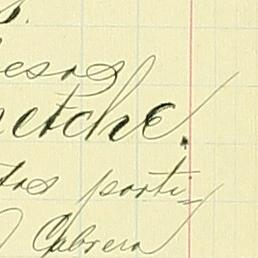 esos
etche.
tas parti=
Cabrera